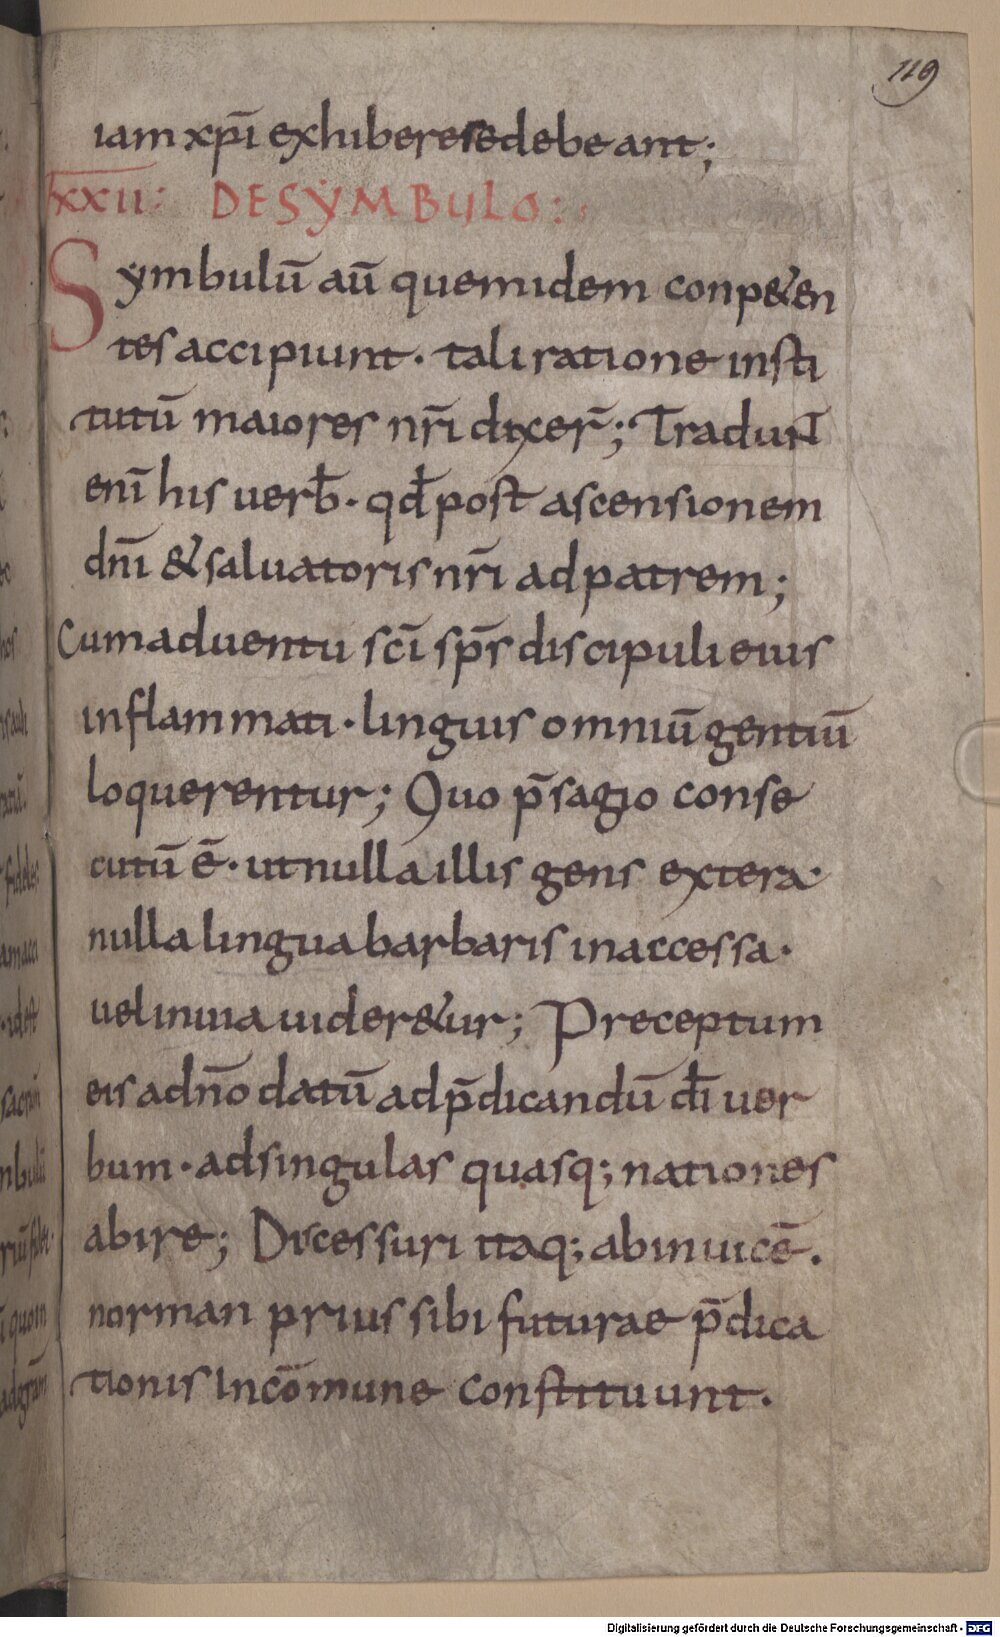 119
iam xp̄i exhiberesedebeant;
lxxii: DESẎMBULO:
Sẏmbulū aū quemidem conp&en
tes accipiunt· tali ratione insti
tutū maiores nr̄i dixer̄; Tradunt
enī his uerb̄· qđ post ascensionem
dn̄i & saluatoris nr̄i ad patrem;
Cum aduentu sc̄i sp̄s discipuli eius
inflammati· linguis omniū gentiū
loquerentur; Quo p̄sagio conse
cutū ē· ut nulla illis gens extera·
nulla lingua barbaris inaccessa·
uel inuia uider&ur; Preceptum
eis adn̄o datū ad p̄dicandū dī uer
bum· ad singulas quasq; nationes
abire; Discessuri itaq; abinuicē.
norman prius sibi futurae p̄dica
tionis incōmune constituunt.
Digitalisierung gefördert durch die Deutsche Forschungsgemeinschaft - DFG